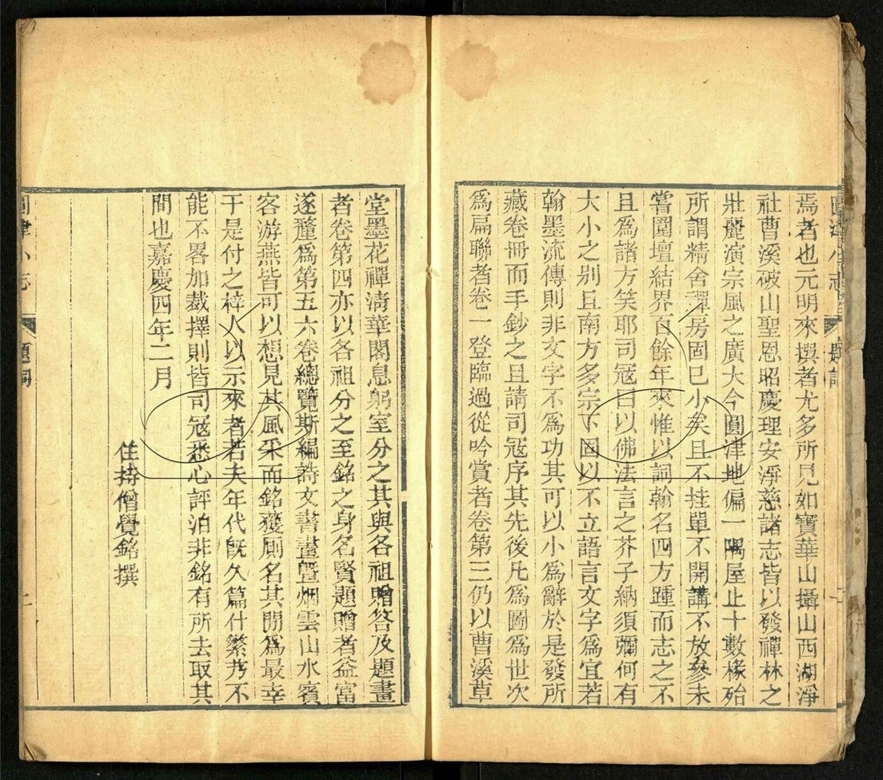 焉者也元明來撰者尤多所見如寶華山攝山西湖淨
社曹溪破山聖恩昭慶理安淨慈諸志皆以發禪林之
壯麗演宗風之廣大今圓津地偏一隅屋止十數椽殆
所謂精舍禪房固已小矣且不挂單不開講不放參未
嘗圍壇結界百餘年來惟以詞翰名四方踵而志之不
且爲諸方笑耶司冦曰以佛法言之芥子納須彌何有
大小之別且南方多宗下固以不立語言文字爲宜若
翰墨流傳則非文字不爲功其可以小爲辭於是發所
藏卷冊而手鈔之且請司冦序其先後凡爲圖爲世次
爲扁聯者卷一登臨過從吟賞者卷第三仍以曹溪草
圓津小志
題詞
堂墨花禪清華閣息躬室分之其與各祖贈答及題畫
者卷第四亦以各祖分之至銘之身名賢題贈者益富
遂釐爲第五六卷總覽斯編詩文書畫曁烟雲山水賓
客游燕皆可以想見其風采而銘獲厠名其閒爲最幸
于是付之梓人以示來者若夫年代旣久篇什繁芿不
能不畧加裁擇則皆司冦悉心評泊非銘有所去取其
間也嘉慶四年二月
住持僧覺銘撰
圓津小志
題詞
二